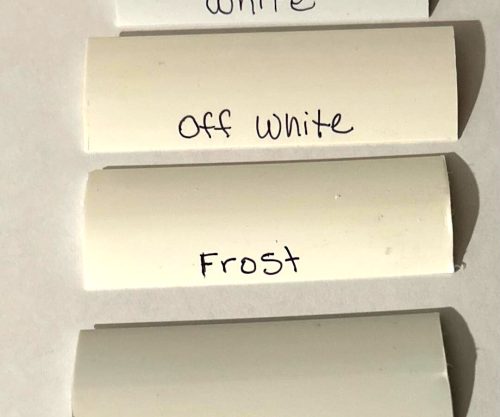 White
Off White
Frost